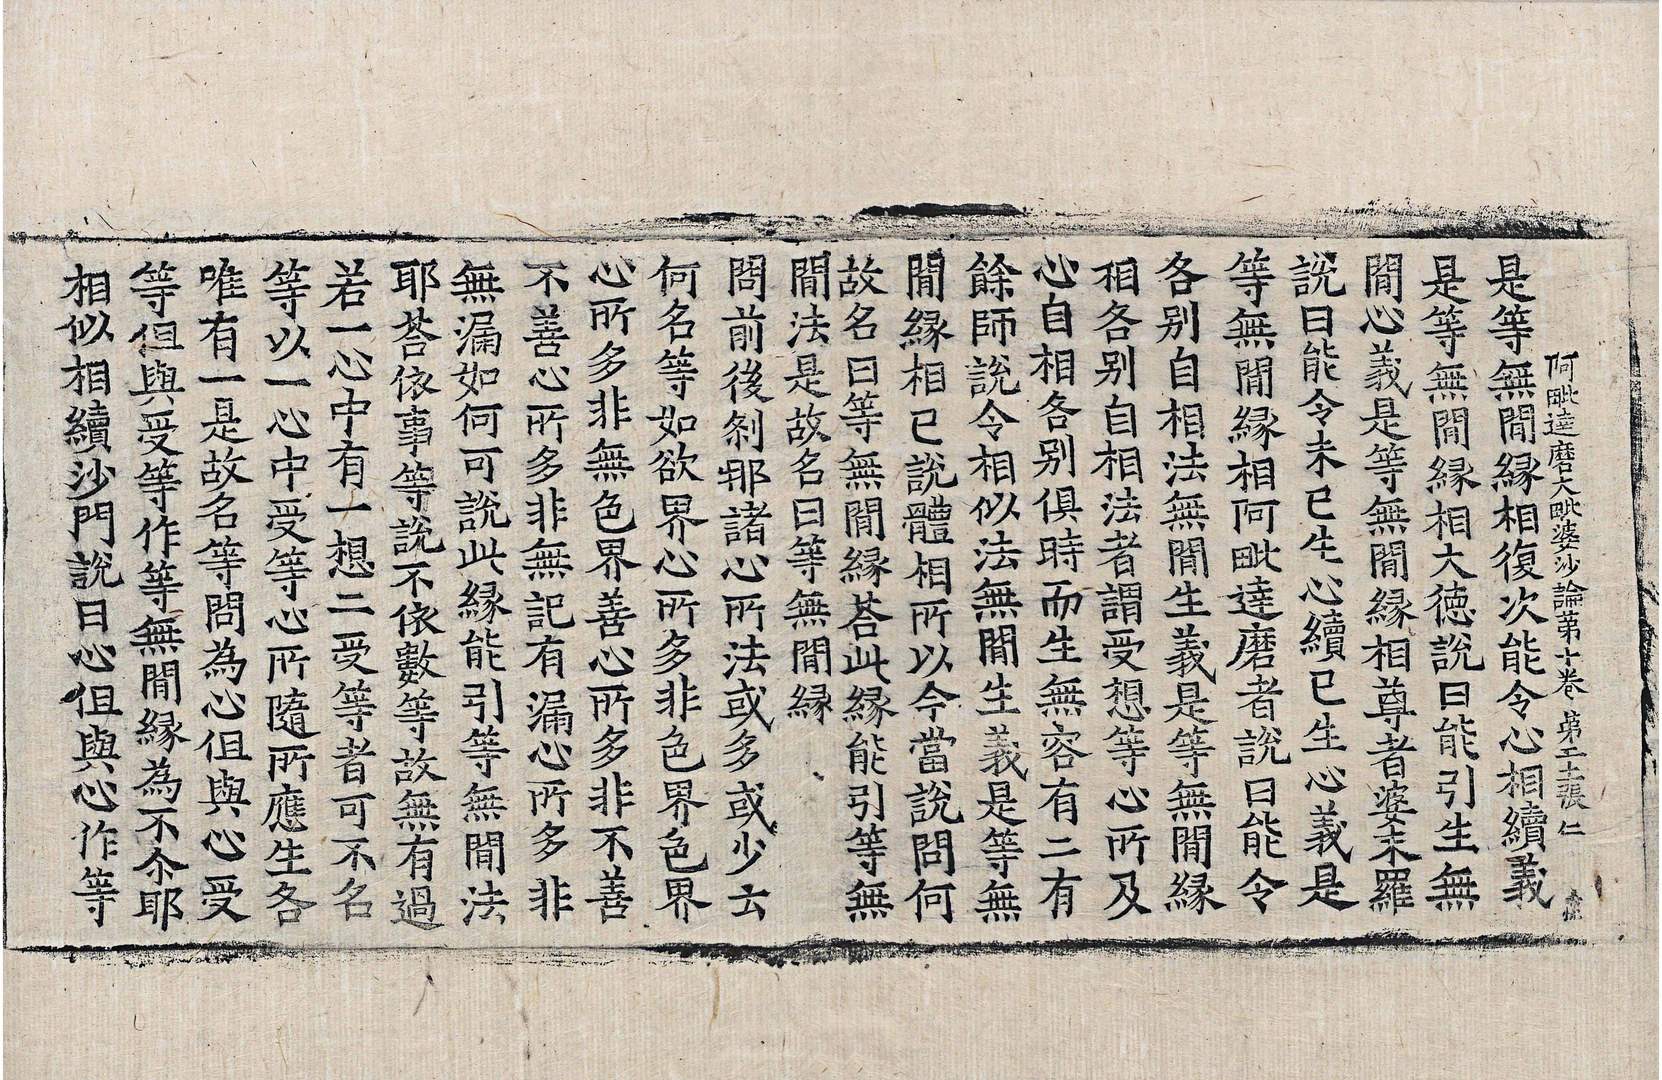 阿毗達磨大毗婆沙論第十卷 第二十張 仁
是等無閒緣相復次能令心相續義
是等無閒緣相大德說曰能引生無
閒心義是等無閒緣相尊者婆末羅
說曰能令未已生心續已生心義是
等無閒緣相阿毗達磨者說曰能令
各別自相法無閒生義是等無閒緣
相各別自相法者謂受想等心所及
心自相各別俱時而生無容有二有
餘師說令相似法無閒生義是等無
閒緣相已說體相所以今當說問何
故名曰等無閒緣荅此緣能引等無
閒法是故名曰等無閒緣
問前後剎那諸心所法或多或少云
何名等如欲界心所多非色界色界
心所多非無色界善心所多非不善
不善心所多非無記有漏心所多非
無漏如何可說此緣能引等無閒法
耶荅依事等說不依數等故無有過
若一心中有一想二受等者可不名
等以一心中受等心所隨所應生各
唯有一是故名等問為心但與心受
等但與受等作等無閒緣為不尒耶
相似相續沙門說曰心但與心作等